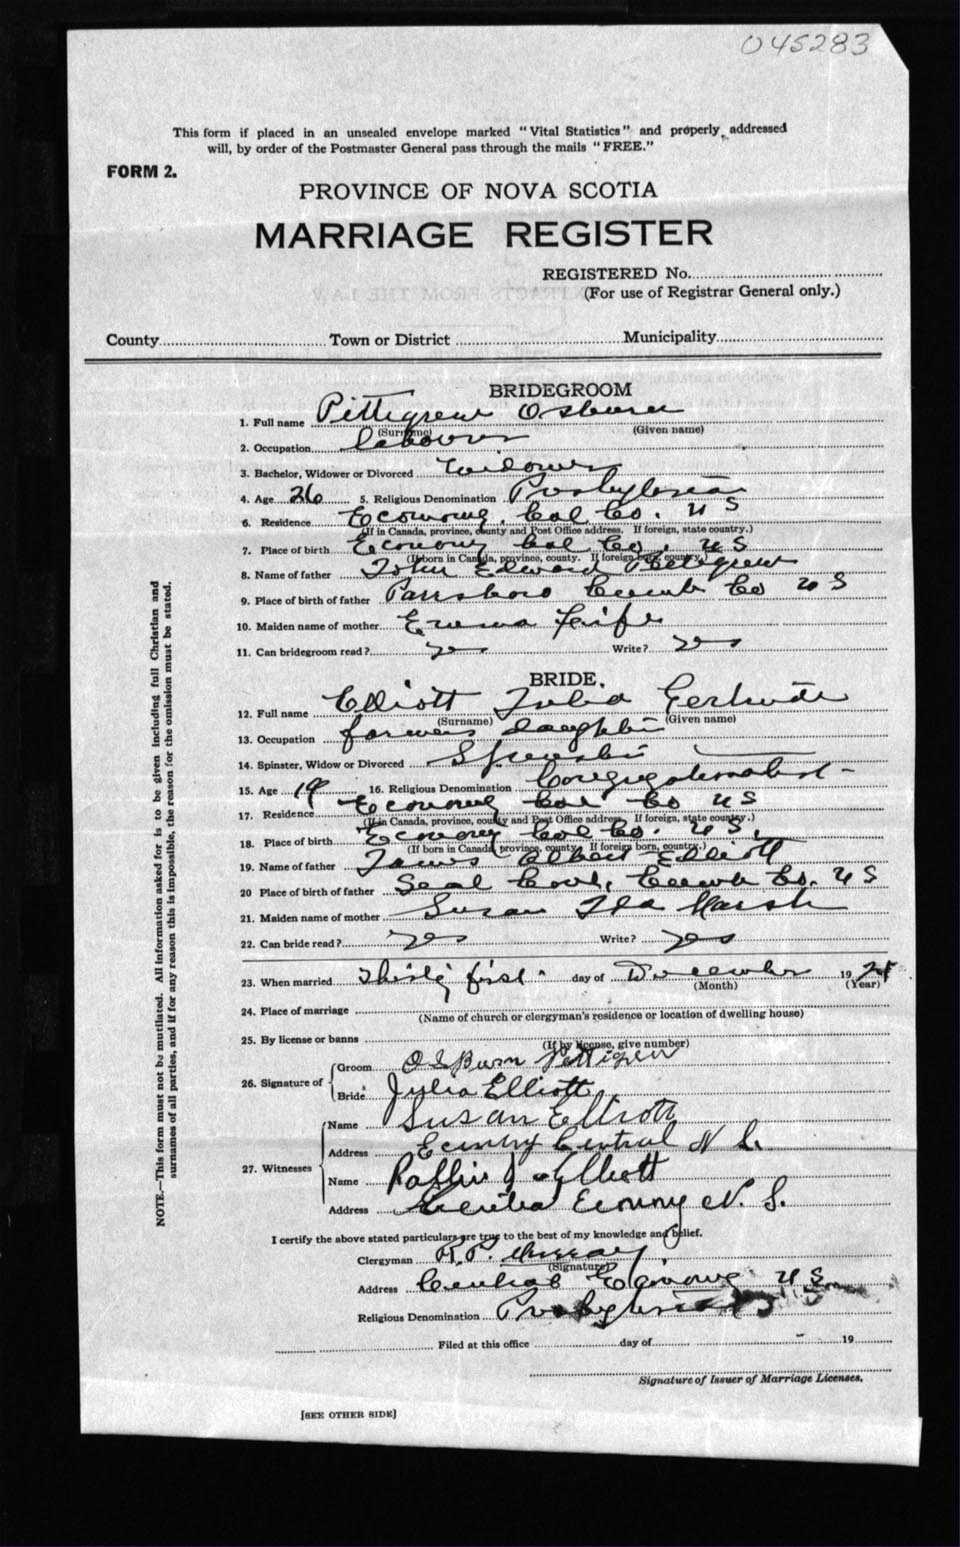 045283
This form if placed in an unsealed envelope marked "Vital Statistics" and properly addressed
will, by order of the Postmaster General pass through the mails "FREE."
FORM 2.
PROVINCE OF NOVA SCOTIA
MARRIAGE REGISTER
REGISTERED No.
(For use of Registrar General only.)
County Town or District Municipality
BRIDEGROOM
1. Full name Pettigrew Osburn
(Surname) (Given name)
2. Occupation labourer
3. Bachelor, Widower or Divorced Widower
4. Age 26 5. Religious Denomination Presbyterian
6. Residence Economy, Col Co. N S
(If in Canada, province, county and Post Office address. If foreign, state country.)
7. Place of birth Economy Col Co. N S
(If born in Canada, province, county. If foreign born, country.)
8. Name of father John Edward Pettigrew
9. Place of birth of father Parrsboro Cumb Co N S
10. Maiden name of mother Emma Fife
11. Can bridegroom read? yes Write? yes
BRIDE.
12. Full name Elliott Julia Gertrude
(Surname) (Given name)
13. Occupation farmers daughter
14. Spinster, Widow or Divorced Spinster
15. Age 19 16. Religious Denomination Congregationalist
17. Residence Economy Col Co N S
(If in Canada, province, county and Post Office address. If foreign, state country.)
18. Place of birth Economy Col Co. N S.
(If born in Canada, province, county. If foreign born, country.)
19. Name of father James Albert Elliott
20 Place of birth of father Seal Cove, Cumb Co. N S
21. Maiden name of mother Susan Ila Marsh
22. Can bride read? yes Write? yes
23. When married Thirty first day of December 19
(Month) (Year)
24. Place of marriage
(Name of church or clergyman's residence or location of dwelling house)
25. By license or banns
(If by license, give number)
26. Signature of Groom OsBurn Pettigrew
Bride Julia Elliott
27. Witnesses Name Susan Elliott
Address Central N S.
Name Elliott
Address Central Economy N. S.
I certify the above stated particulars are true to the best of my knowledge and belief.
Clergyman R. P. Murray
(Signature)
Address Central Economy N S
Religious Denomination Presbyterian
Filed at this office day of 19
Signature of Issuer of Marriage Licenses.
[SEE OTHER SIDE]
NOTE.—This form must not be mutilated. All information asked for is to be given including full Christian and
surnames of all parties, and if for any reason this is impossible, the reason for the omission must be stated.